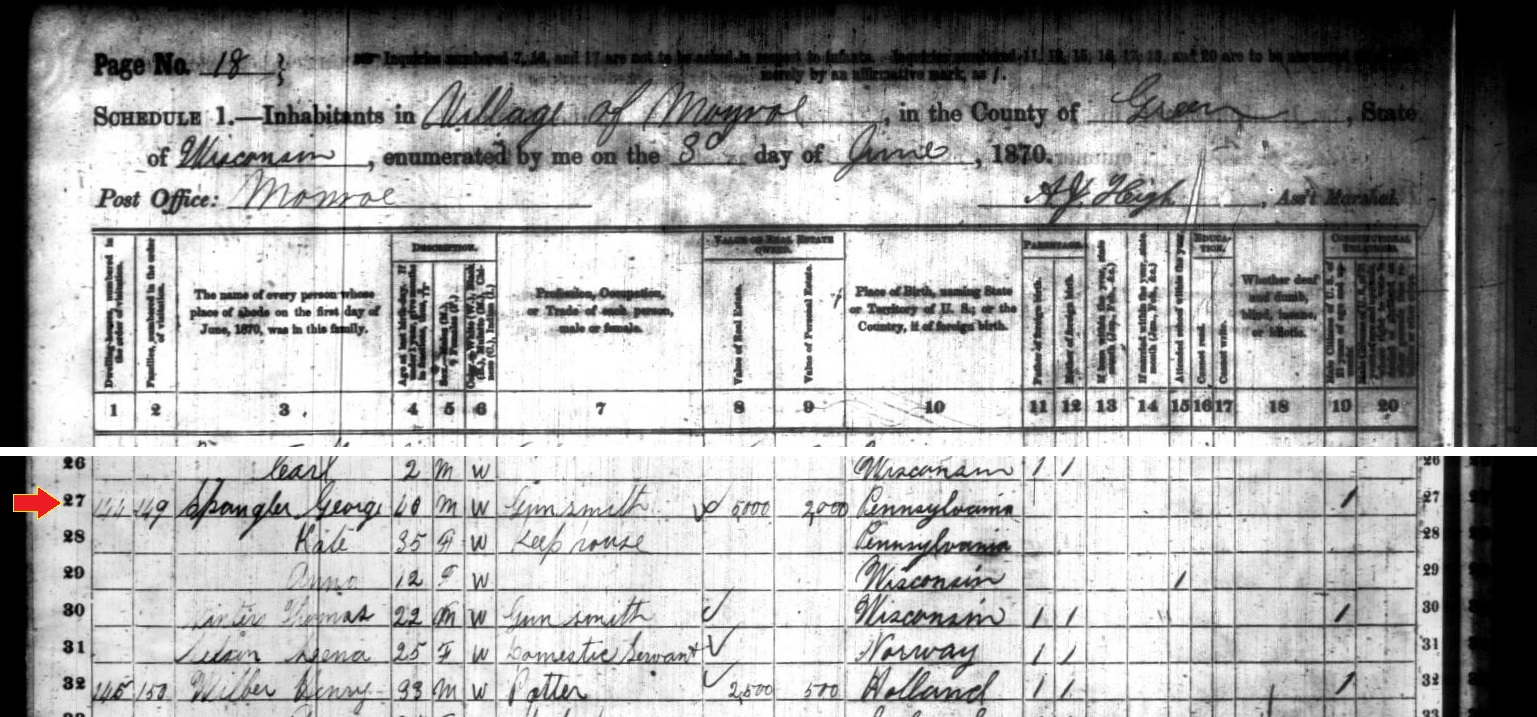 Page No. 18 }
Inquiries numbered 7, 16, and 17 are not to be asked in respect to infants. Inquiries numbered 11, 12, 15, 16, 17, 19, and 20 are to be answered
merely by an affirmative mark, as /.
SCHEDULE 1.—Inhabitants in Village of Monroe, in the County of Green, State
of Wisconsin, enumerated by me on the 3d day of June, 1870.
Post Office: Monroe
A.J. High, Ass't Marshal.
DESCRIPTION. VALUE OF REAL ESTATE OWNED. PARENTAGE. EDUCATION. CONSTITUTIONAL RELATIONS.
Dwelling-houses, numbered in the order of visitation.
Families, numbered in the order of visitation.
The name of every person whose place of abode on the first day of June, 1870, was in this family.
Profession, Occupation, or Trade of each person, male or female.
Value of Real Estate.
Value of Personal Estate.
Place of Birth, naming State or Territory of U. S.; or the Country, if of foreign birth.
Father of foreign birth.
Mother of foreign birth.
If born within the year, state month (Jan., Feb., &c.)
If married within the year, state month (Jan., Feb., &c.)
Attended school within the year.
Cannot read.
Cannot write.
Whether deaf and dumb, blind, insane, or idiotic.
1 2 3 4 5 6 7 8 9 10 11 12 13 14 15 16 17 18 19 20
26 Carl 2 M W Wisconsin / / 26
27 144 149 Spangler George 40 M W Gunsmith 5,000 2,000 Pennsylvania / 27
28 Kate 35 F W Keep house Pennsylvania 28
29 Anna 12 F W Wisconsin / 29
30 Thomas 22 M W Gun smith Wisconsin / / / 30
31 Lena 25 F W Domestic Servant Norway / / 31
32 145 150 Wilber Henry 33 M W Potter 2,500 500 Holland / / / 32
33